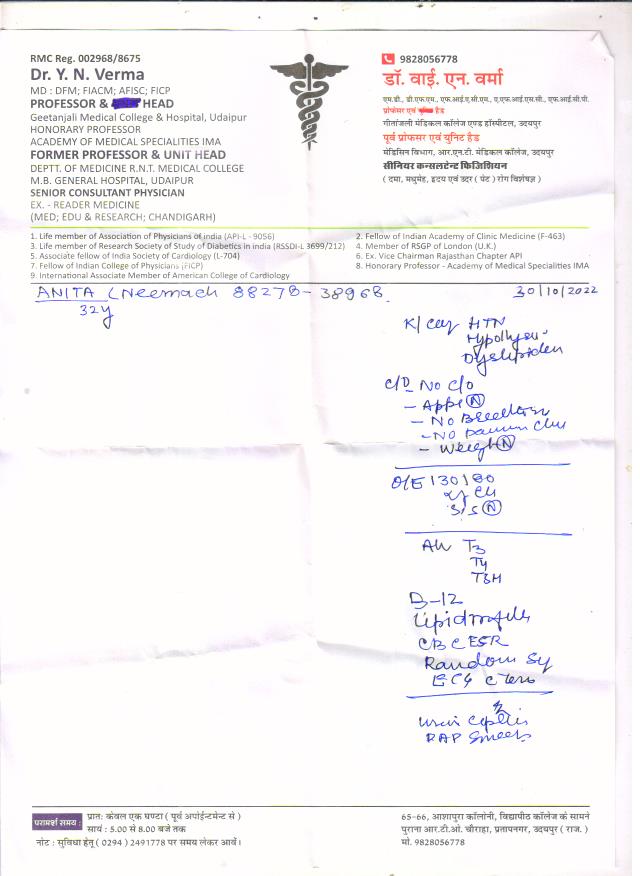 RMC Reg. 002968/8675
Dr. Y. N. Verma
MD : DFM; FIACM; AFISC; FICP
PROFESSOR & HEAD
Geetanjali Medical College & Hospital, Udaipur
HONORARY PROFESSOR
ACADEMY OF MEDICAL SPECIALITIES IMA
FORMER PROFESSOR & UNIT HEAD
DEPTT. OF MEDICINE R.N.T. MEDICAL COLLEGE
M.B. GENERAL HOSPITAL, UDAIPUR
SENIOR CONSULTANT PHYSICIAN
EX. - READER MEDICINE
(MED; EDU & RESEARCH; CHANDIGARH)
9828056778
डॉ. वाई. एन. वर्मा
एम.डी., डी.एफ.एम., एफ.आई.ए.सी.एम., ए.एफ.आई.एस.सी., एफ.आई.सी.पी.
प्रोफेसर एवं हैड
गीतांजली मेडिकल कॉलेज एण्ड हॉस्पिटल, उदयपुर
पूर्व प्रोफसर एवं युनिट हैड
मेडिसिन विभाग, आर.एन.टी. मेडिकल कॉलेज, उदयपुर
सीनियर कन्सलटेन्ट फिजिशियन
( दमा, मधुमेह, हृदय एवं उदर ( पेट ) रोग विशेषज्ञ )
1. Life member of Association of Physicians of india (API-L - 9056)
2. Fellow of Indian Academy of Clinic Medicine (F-463)
3. Life member of Research Society of Study of Diabetics in india (RSSDI-L 3699/212)
4. Member of RSGP of London (U.K.)
5. Associate fellow of India Society of Cardiology (L-704)
6. Ex. Vice Chairman Rajasthan Chapter API
7. Fellow of Indian College of Physicians (FICP)
8. Honorary Professor - Academy of Medical Specialities IMA
9. International Associate Member of American College of Cardiology
ANITA (Neemach 88278-38968
30/10/2022
32y
HTN
C/O No C/o
- Appt N
- NO
- NO
- Weight N
O/E 130/80
S/S N
T3
T4
TSH
B-12
Lipid profile
CBC ESR
Random
ECG
PAP Smear
परामर्श समय :
प्रातः केवल एक घण्टा ( पूर्व अपोईन्टमेन्ट से )
सायं : 5.00 से 8.00 बजे तक
नोट : सुविधा हेतू ( 0294 ) 2491778 पर समय लेकर आवें।
65-66, आशापुरा कॉलोनी, विद्यापीठ कॉलेज के सामने
पुराना आर.टी.ओ. चौराहा, प्रतापनगर, उदयपुर ( राज. )
मो. 9828056778